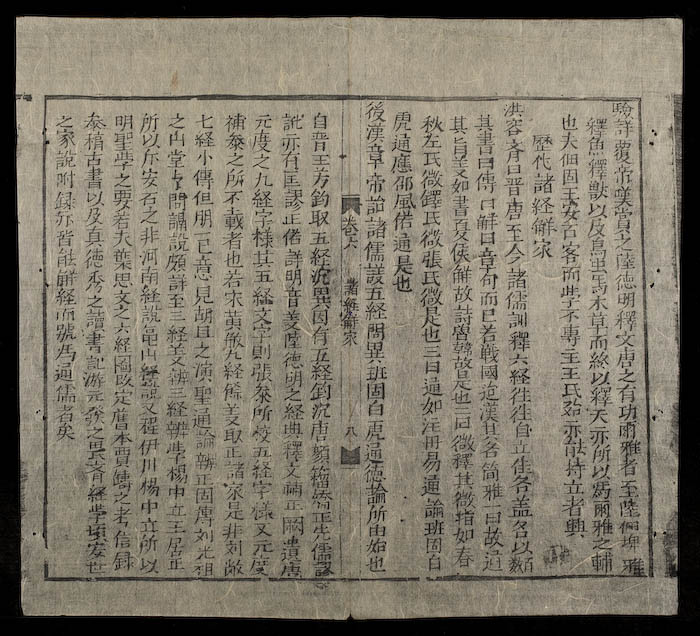 驗詳覆帝羙賞之陸德明釋文唐之有功爾雅者至陸佃埤雅
釋魚釋獸以及鳥虫馬木草而終以釋天亦所以爲爾雅之輔
也夫佃固王安石客而學不專主王氏亦能特立者與
歷代諸經解家
洪容齋曰晋唐至今諸儒訓釋六經徃徃自立佳名盖各以百數
其書曰傳曰解曰章句而已若戰國迨漢其名簡雅一曰故通
其旨義如書夏侯解故詩魯韓故是也二曰微釋其微指如春
秋左氏微鐸氏微張氏微是也三曰通如注丹易通論班固白
虎通應邵風俗通是也
後漢章帝詔諸儒議五經同異班固白虎通德論所由始也
卷六 諸經解家 八
自晋王芳鈎取五經沉異因有五經鈎沉唐顏籀矯正先儒謬
訛亦有匡謬正俗詳明音義陸德明之經典釋文補正闕遺唐
元度之九經字樣其五經文字則張泰所校五經字樣又元度
補泰之所不載者也若宋黄敏九經餘義取正諸家是非刘敞
七經小傳但明一己意見胡旦之演聖通論辨正固傳刘光祖
之山堂与問講說頗詳至三經義辨三經辨學楊中立王居正
所以斥安石之非河南經說亀山經說又程伊川楊中立所以
明聖學之要若夫葉思文之六經圖改定舊本賈鑄之考信録
泰稽古書以及真德秀之讀書記游元發之畏齋經學項安世
之家說附録亦皆能觧經而號爲通儒者矣